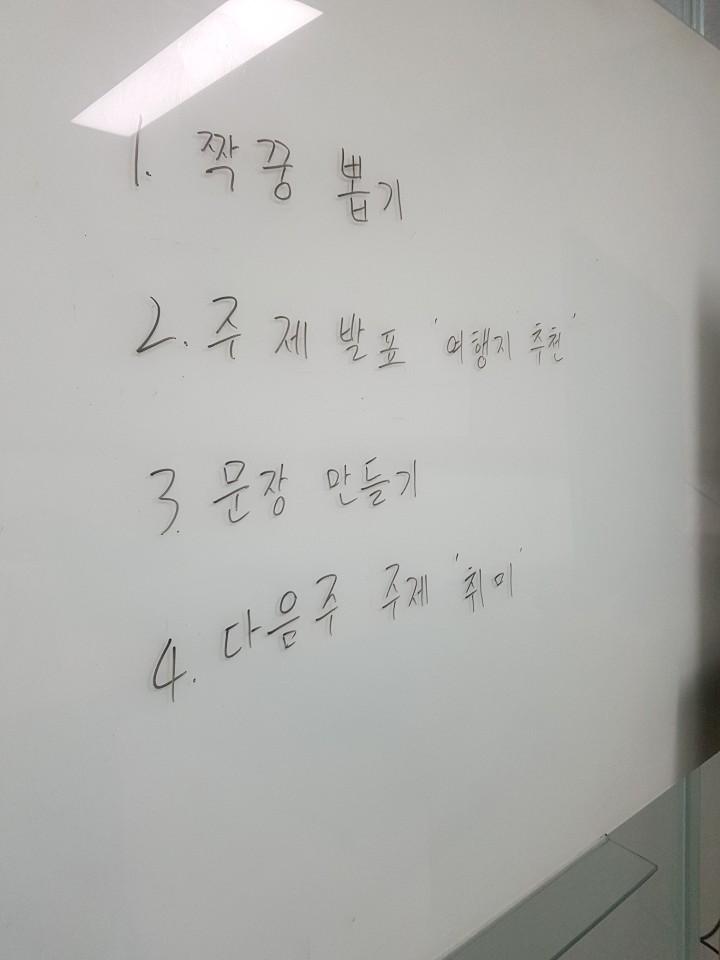 1. 짝꿍 뽑기
2. 주제 발표 '여행지 추천'
3. 문장 만들기
4. 다음주 주제 '취미'